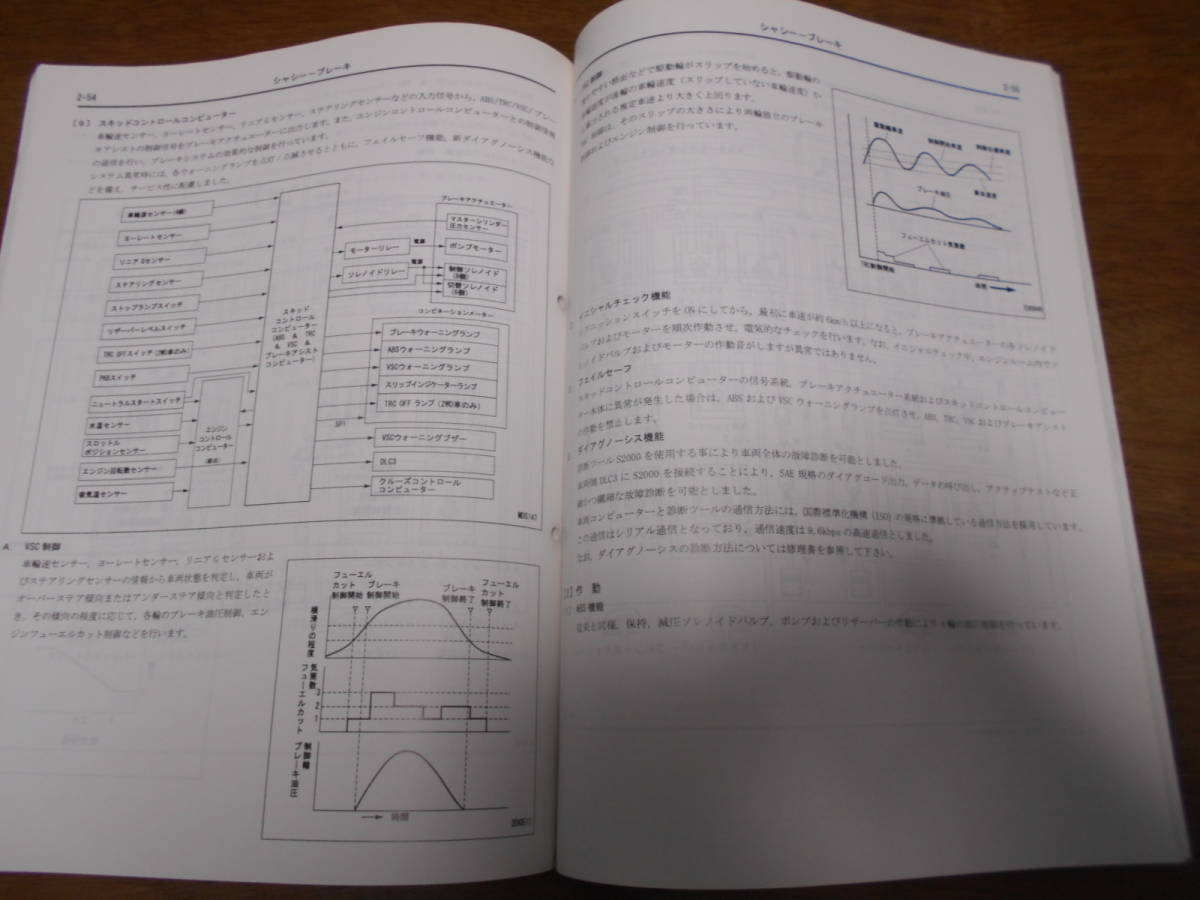 シャシー－ブレーキ
2-54
[9] スキッドコントロールコンピューター
車輪速センサー、ヨーレートセンサー、リニアGセンサー、ステアリングセンサーなどの入力信号から、ABS/TRC/VSC/ブレー
キアシストの制御信号をブレーキアクチュエーターに出力します。また、エンジンコントロールコンピューターとの制御情報
の通信を行い、ブレーキシステムの効果的な制御を行っています。
システム異常時には、各ウォーニングランプを点灯/点滅させるとともに、フェイルセーフ機能、新ダイアグノーシス機能な
どを備え、サービス性に配慮しました。
車輪速センサー(4個)
ヨーレートセンサー
リニアGセンサー
ステアリングセンサー
ストップランプスイッチ
リザーバーレベルスイッチ
TRC OFFスイッチ(2WD車のみ)
PKBスイッチ
ニュートラルスタートスイッチ
水温センサー
スロットル
ポジションセンサー
エンジン回転数センサー
吸気温センサー
エンジン
コントロール
コンピューター
スキッド
コントロール
コンピューター
(ABS & TRC
& VSC &
ブレーキアシスト
コンピューター)
モーターリレー
電源
ソレノイドリレー
電源
ブレーキアクチュエーター
マスターシリンダー
圧力センサー
ポンプモーター
制御ソレノイド
(8個)
切替ソレノイド
コンビネーションメーター
ブレーキウォーニングランプ
ABSウォーニングランプ
VSCウォーニングランプ
スリップインジケーターランプ
TRC OFF ランプ(2WD車のみ)
SP1
VSCウォーニングブザー
DLC3
クルーズコントロール
コンピューター
A VSC制御
車輪速センサー、ヨーレートセンサー、リニアGセンサーおよ
びステアリングセンサーの情報から車両状態を判定し、車両が
オーバーステア傾向またはアンダーステア傾向と判定したと
き、その傾向の程度に応じて、各輪のブレーキ油圧制御、エン
ジンフューエルカット制御などを行います。
フューエル
カット
制御開始
ブレーキ
制御開始
ブレーキ
制御終了
フューエル
カット
制御終了
横滑りの程度
フューエルカット
気筒数
3
2
1
制御輪
ブレーキ油圧
時間
シャシー－ブレーキ
制御
やすい路面などで駆動輪がスリップを始めると、駆動輪の
車輪速度が後輪の車輪速度(スリップしていない車輪速度)か
ら算出される推定車速より大きく上回ります。
制御は、そのスリップの大きさにより両輪独立のブレーキ
制御およびエンジン制御を行っています。
駆動輪車速
制御開始車速
制御目標車速
車体速度
ブレーキ油圧
フューエルカット気筒数
TRC制御開始
時間
イニシャルチェック機能
イグニッションスイッチをONにしてから、最初に車速が約6km/h以上になると、ブレーキアクチュエーターの各ソレノイド
バルブおよびモーターを順次作動させ、電気的なチェックを行います。なお、イニシャルチェック中、エンジンルーム内でソ
レノイドバルブおよびモーターの作動音がしますが異常ではありません。
フェイルセーフ
スキッドコントロールコンピューターの信号系統、ブレーキアクチュエーター系統およびスキッドコントロールコンピュー
ター本体に異常が発生した場合は、ABSおよびVSCウォーニングランプを点灯させ、ABS、TRC、VSCおよびブレーキアシスト
の作動を禁止します。
ダイアグノーシス機能
診断ツールS2000を使用する事により車両全体の故障診断を可能としました。
車両側DLC3にS2000を接続することにより、SAE規格のダイアグコード出力、データの呼び出し、アクティブテストなど正
確かつ繊細な故障診断を可能としました。
車両コンピューターと診断ツールの通信方法には、国際標準化機構(ISO)の規格に準拠している通信方法を採用しています。
この通信はシリアル通信となっており、通信速度は9.6kbpsの高速通信としました。
なお、ダイアグノーシスの診断方法については修理書を参照して下さい。
[2] 作 動
ABS機能
従来と同様、保持、減圧ソレノイドバルブ、ポンプおよびリザーバーの作動により4輪の油圧制御を行っています。